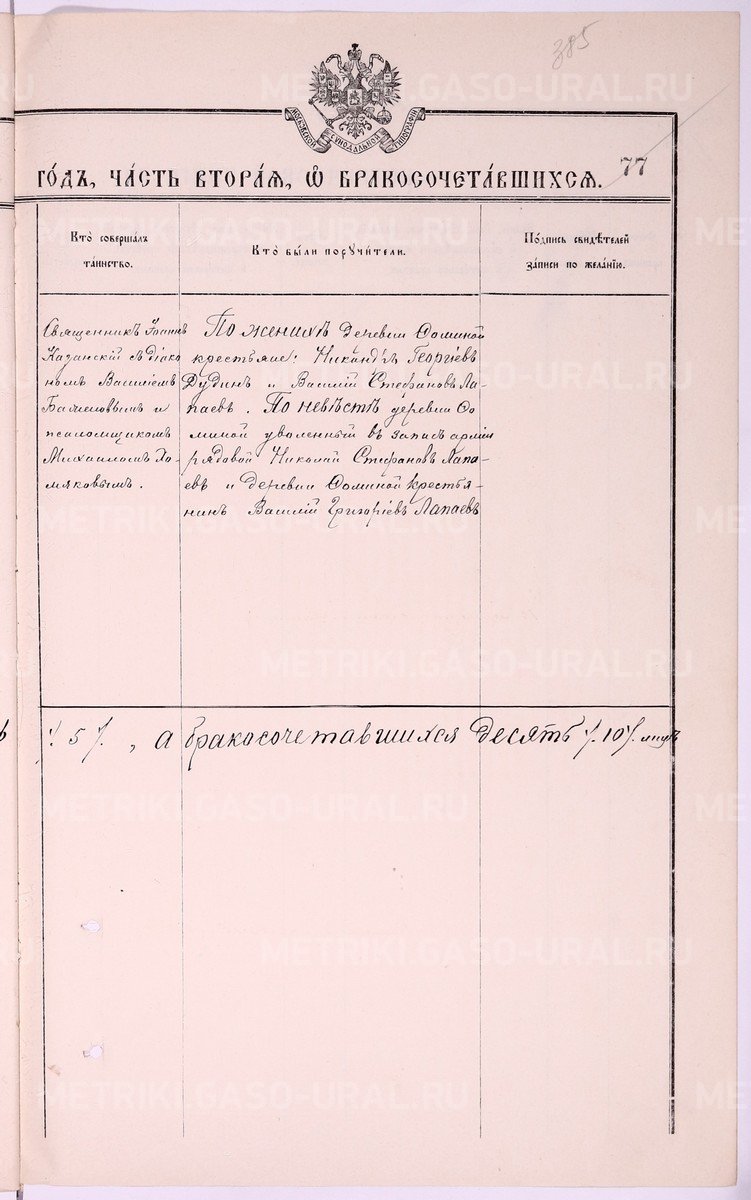 385
МОСКОВСКОЙ СѴНОДАЛЬНОЙ ТИПОГРАФІИ
77
го́дъ, ча́сть втора́ѧ, ѡ҆ бракосочета́вшихсѧ.
Кто̀ соверша́лъ
та́инство.
Кто̀ бы́ли порꙋчи́тели.
По́дпись свидѣ́телей
за́писи по жела́нїю.
Священникъ Іоаннъ
Казанскій съ діако
номъ Василіемъ
Баженовымъ и
псаломщикомъ
Михаиломъ Хо-
мяковымъ.
По женихѣ деревни Соминой
крестьяне: Никандръ Георгіевъ
Дудинъ и Василій Стефановъ Ла-
паевъ. По невѣстѣ деревни Со
миной уволенный въ запасъ арміи
рядовой Николай Стефановъ Лапа-
евъ и деревни Соминой крестья-
нинъ Василій Григоріевъ Лапаевъ
ъ /. 5 /. , а бракосочетавшихся десять /. 10 /. лицъ
METRIKI.GASO-URAL.RU